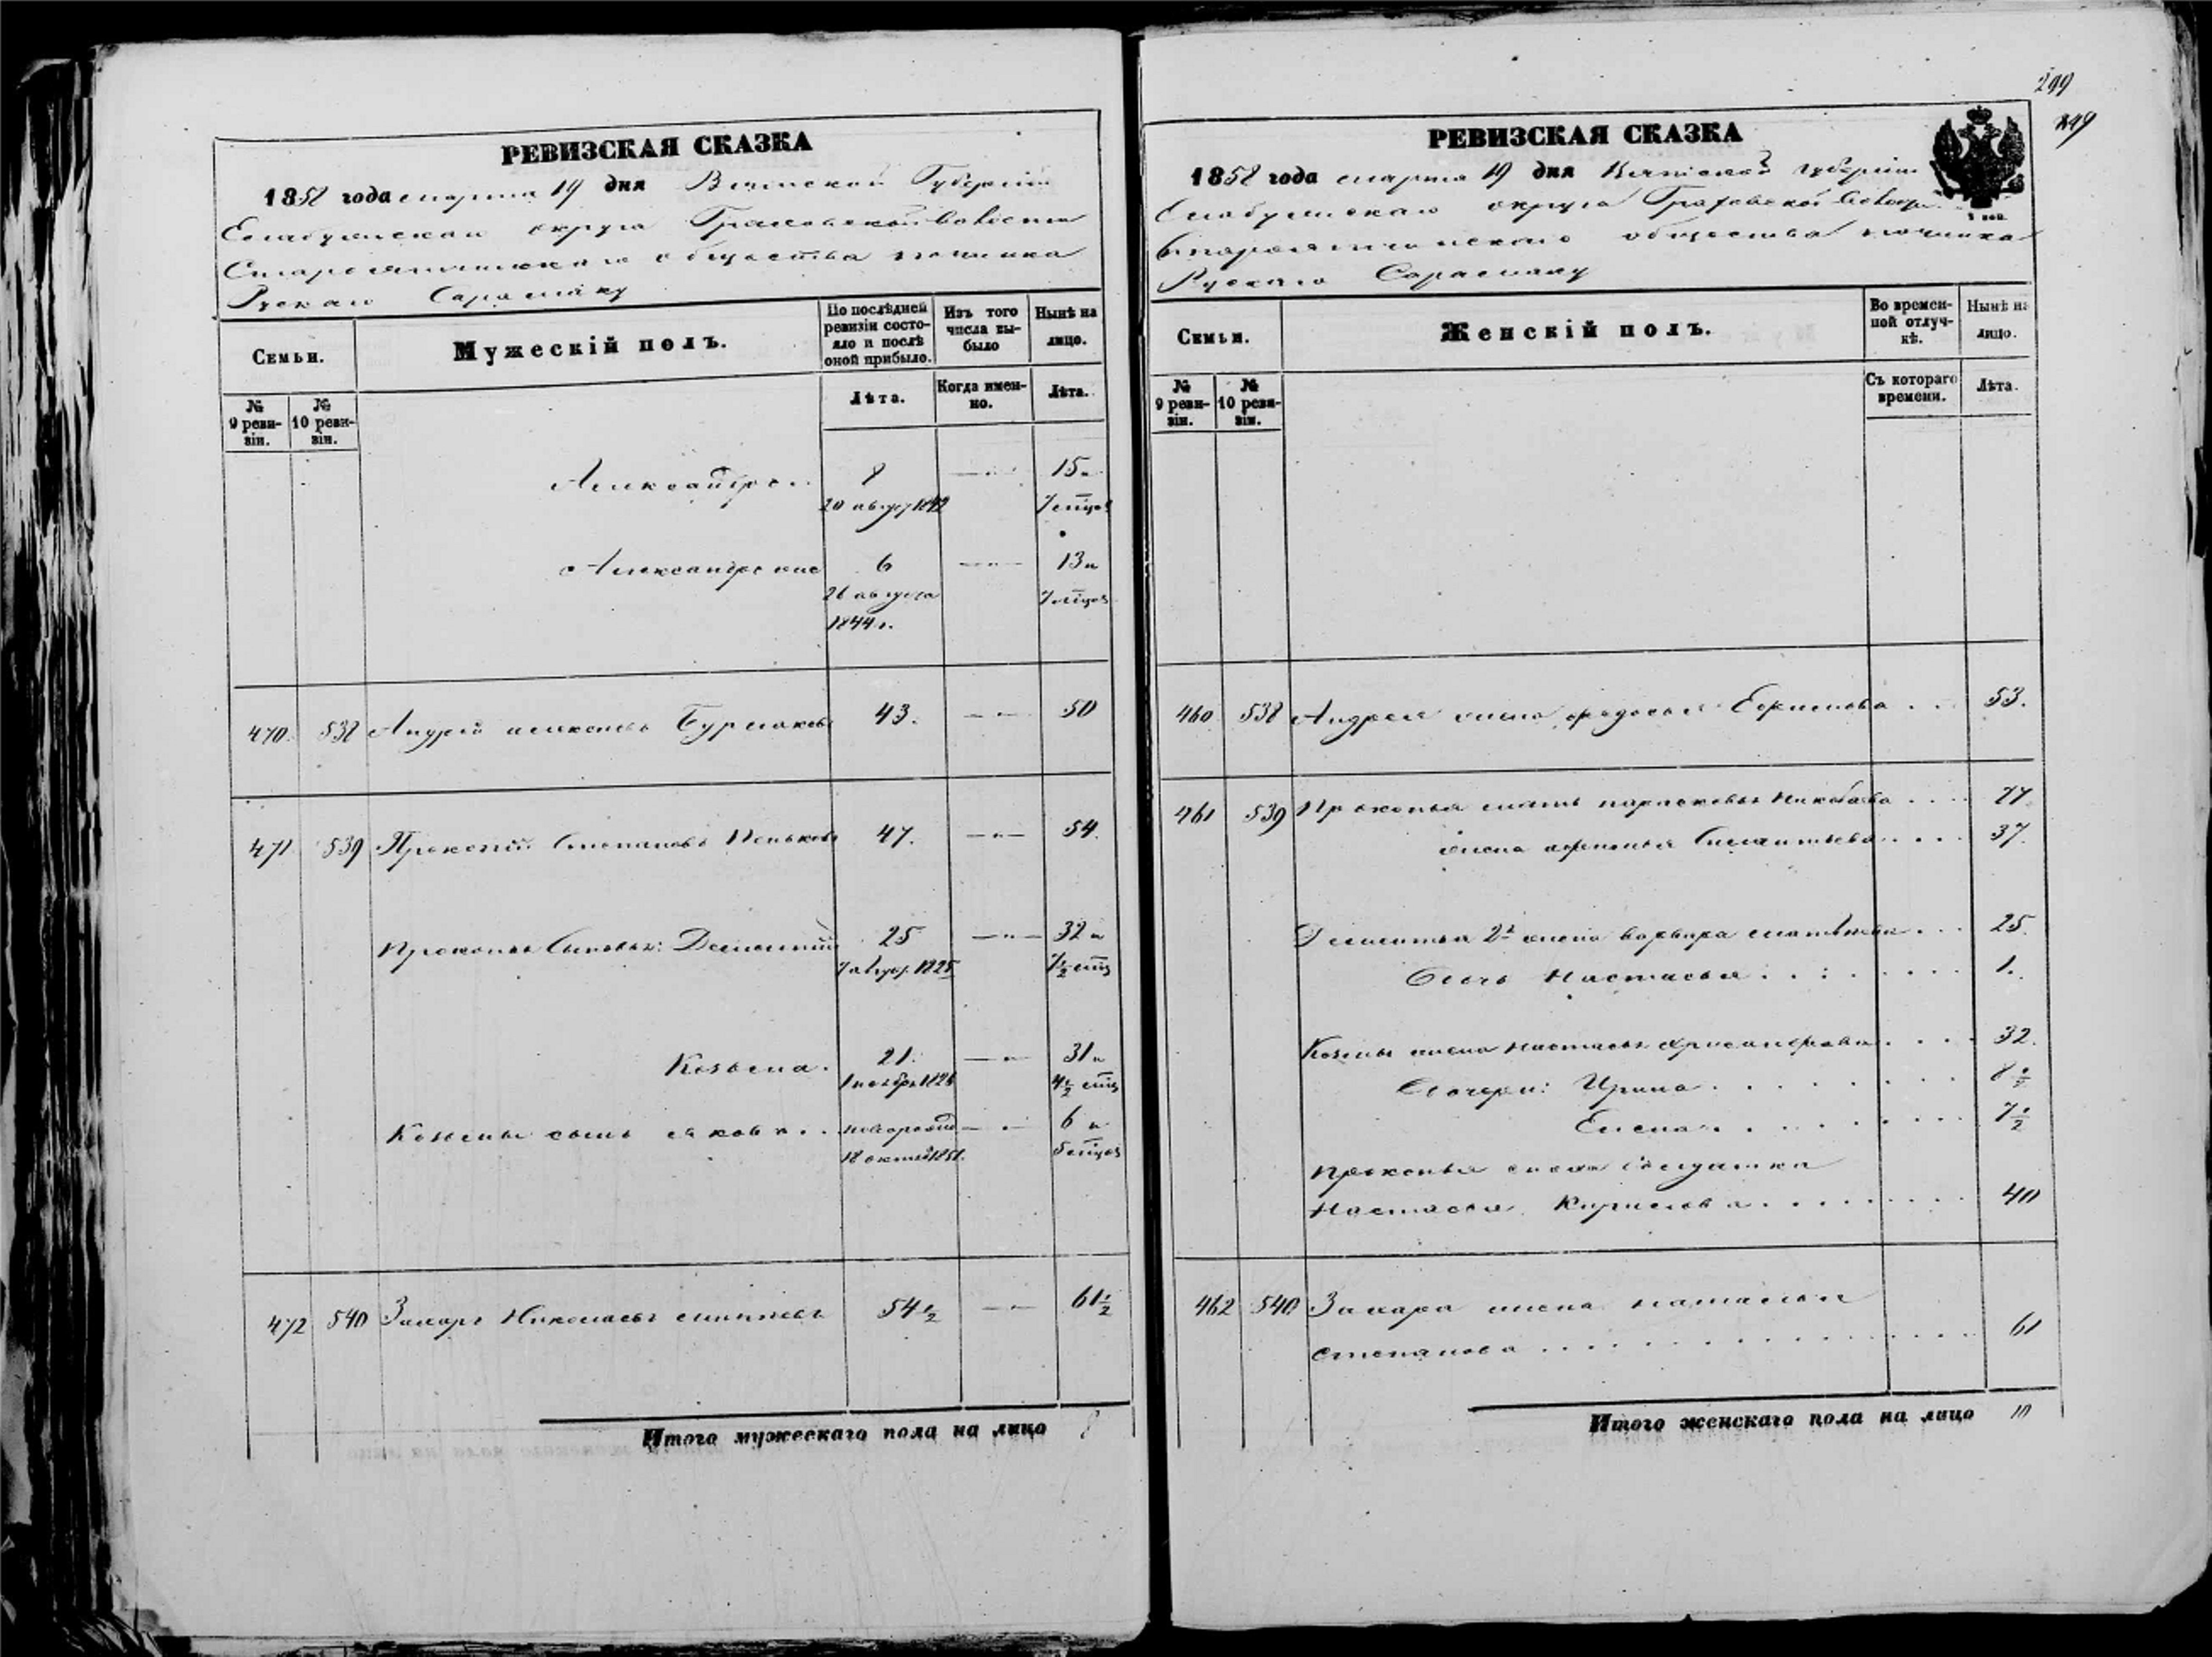 299
249
РЕВИЗСКАЯ СКАЗКА
1858 года марта 19 дня Вятской Губернiи
Елабужскаго округа Граховской волости
общества починка
Рускаго Сарамаку
Семьи.
Мужескій полъ.
По послѣдней ревизіи состояло и послѣ оной прибыло.
Изъ того числа выбыло
Нынѣ на лицо.
№ 9 ревизіи.
№ 10 ревизіи.
Лѣта.
Когда именно.
Лѣта.
Александръ . 8 — „ — 15 и
20 август 1842 7 мцов
Александръ же 6 — „ — 13 и
26 августа 7 мцов
1844 г.
470. 538 Андрей Бурмаковъ 43. — „ — 50
471 539 Прокопій Степановъ Пеньковъ 47. — „ — 54.
Прокопья Сыновья: Дементій 25 — „ — 32 и
7 1825 7½ мцъ
Козьма . 21. — „ — 31 и
1 ноябр 4½ мцъ
Козьмы сынъ Яковъ . . новорожд — „ — 6 и
18 октяб 1851. 5 мцов
472 540 Захаръ Николаевъ 54½ — „ — 61½
Итого мужескаго пола на лицо 8
РЕВИЗСКАЯ СКАЗКА
1858 года марта 19 дня Вятской губернiи
Елабужскаго округа Граховской волости
общества починка
Рускаго Сарамаку
1 коп.
Семьи.
Женскій полъ.
Во временной отлучкѣ.
Нынѣ на лицо.
№ 9 ревизіи.
№ 10 ревизіи.
Съ котораго времени.
Лѣта.
460 538 Андрея жена федосья Ефимова . . 53.
461 539 Прокопья мать парасковья Николаева . . . 77.
жена афимья . . . . 37.
Дементья 2я жена варвара . . . 25.
Дочь Настасья . . . . . . . . 1.
Козьмы жена Настасья . . . . 32.
Дочери: Ирина . . . . . . . . . 8½
Елена . . . . . . . . . 7½
Прокопья сноха Солдатка
Настасья Кирилова . . . . . . . . 40
462 540 Захара жена наталья
степанова . . . . . . . . . . . . . . . 61
Итого женскаго пола на лицо 10